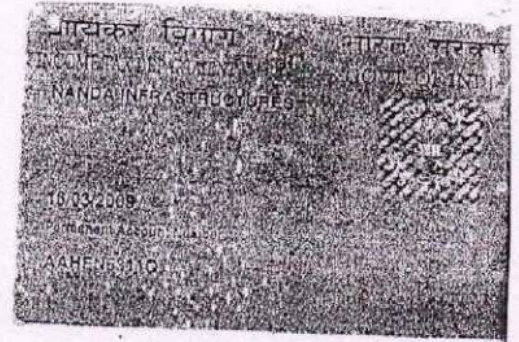 आयकर विभाग भारत सरकार
INCOME TAX DEPARTMENT GOVT. OF INDIA
NANDA INFRASTRUCTURES
16/03/2009
Permanent Account